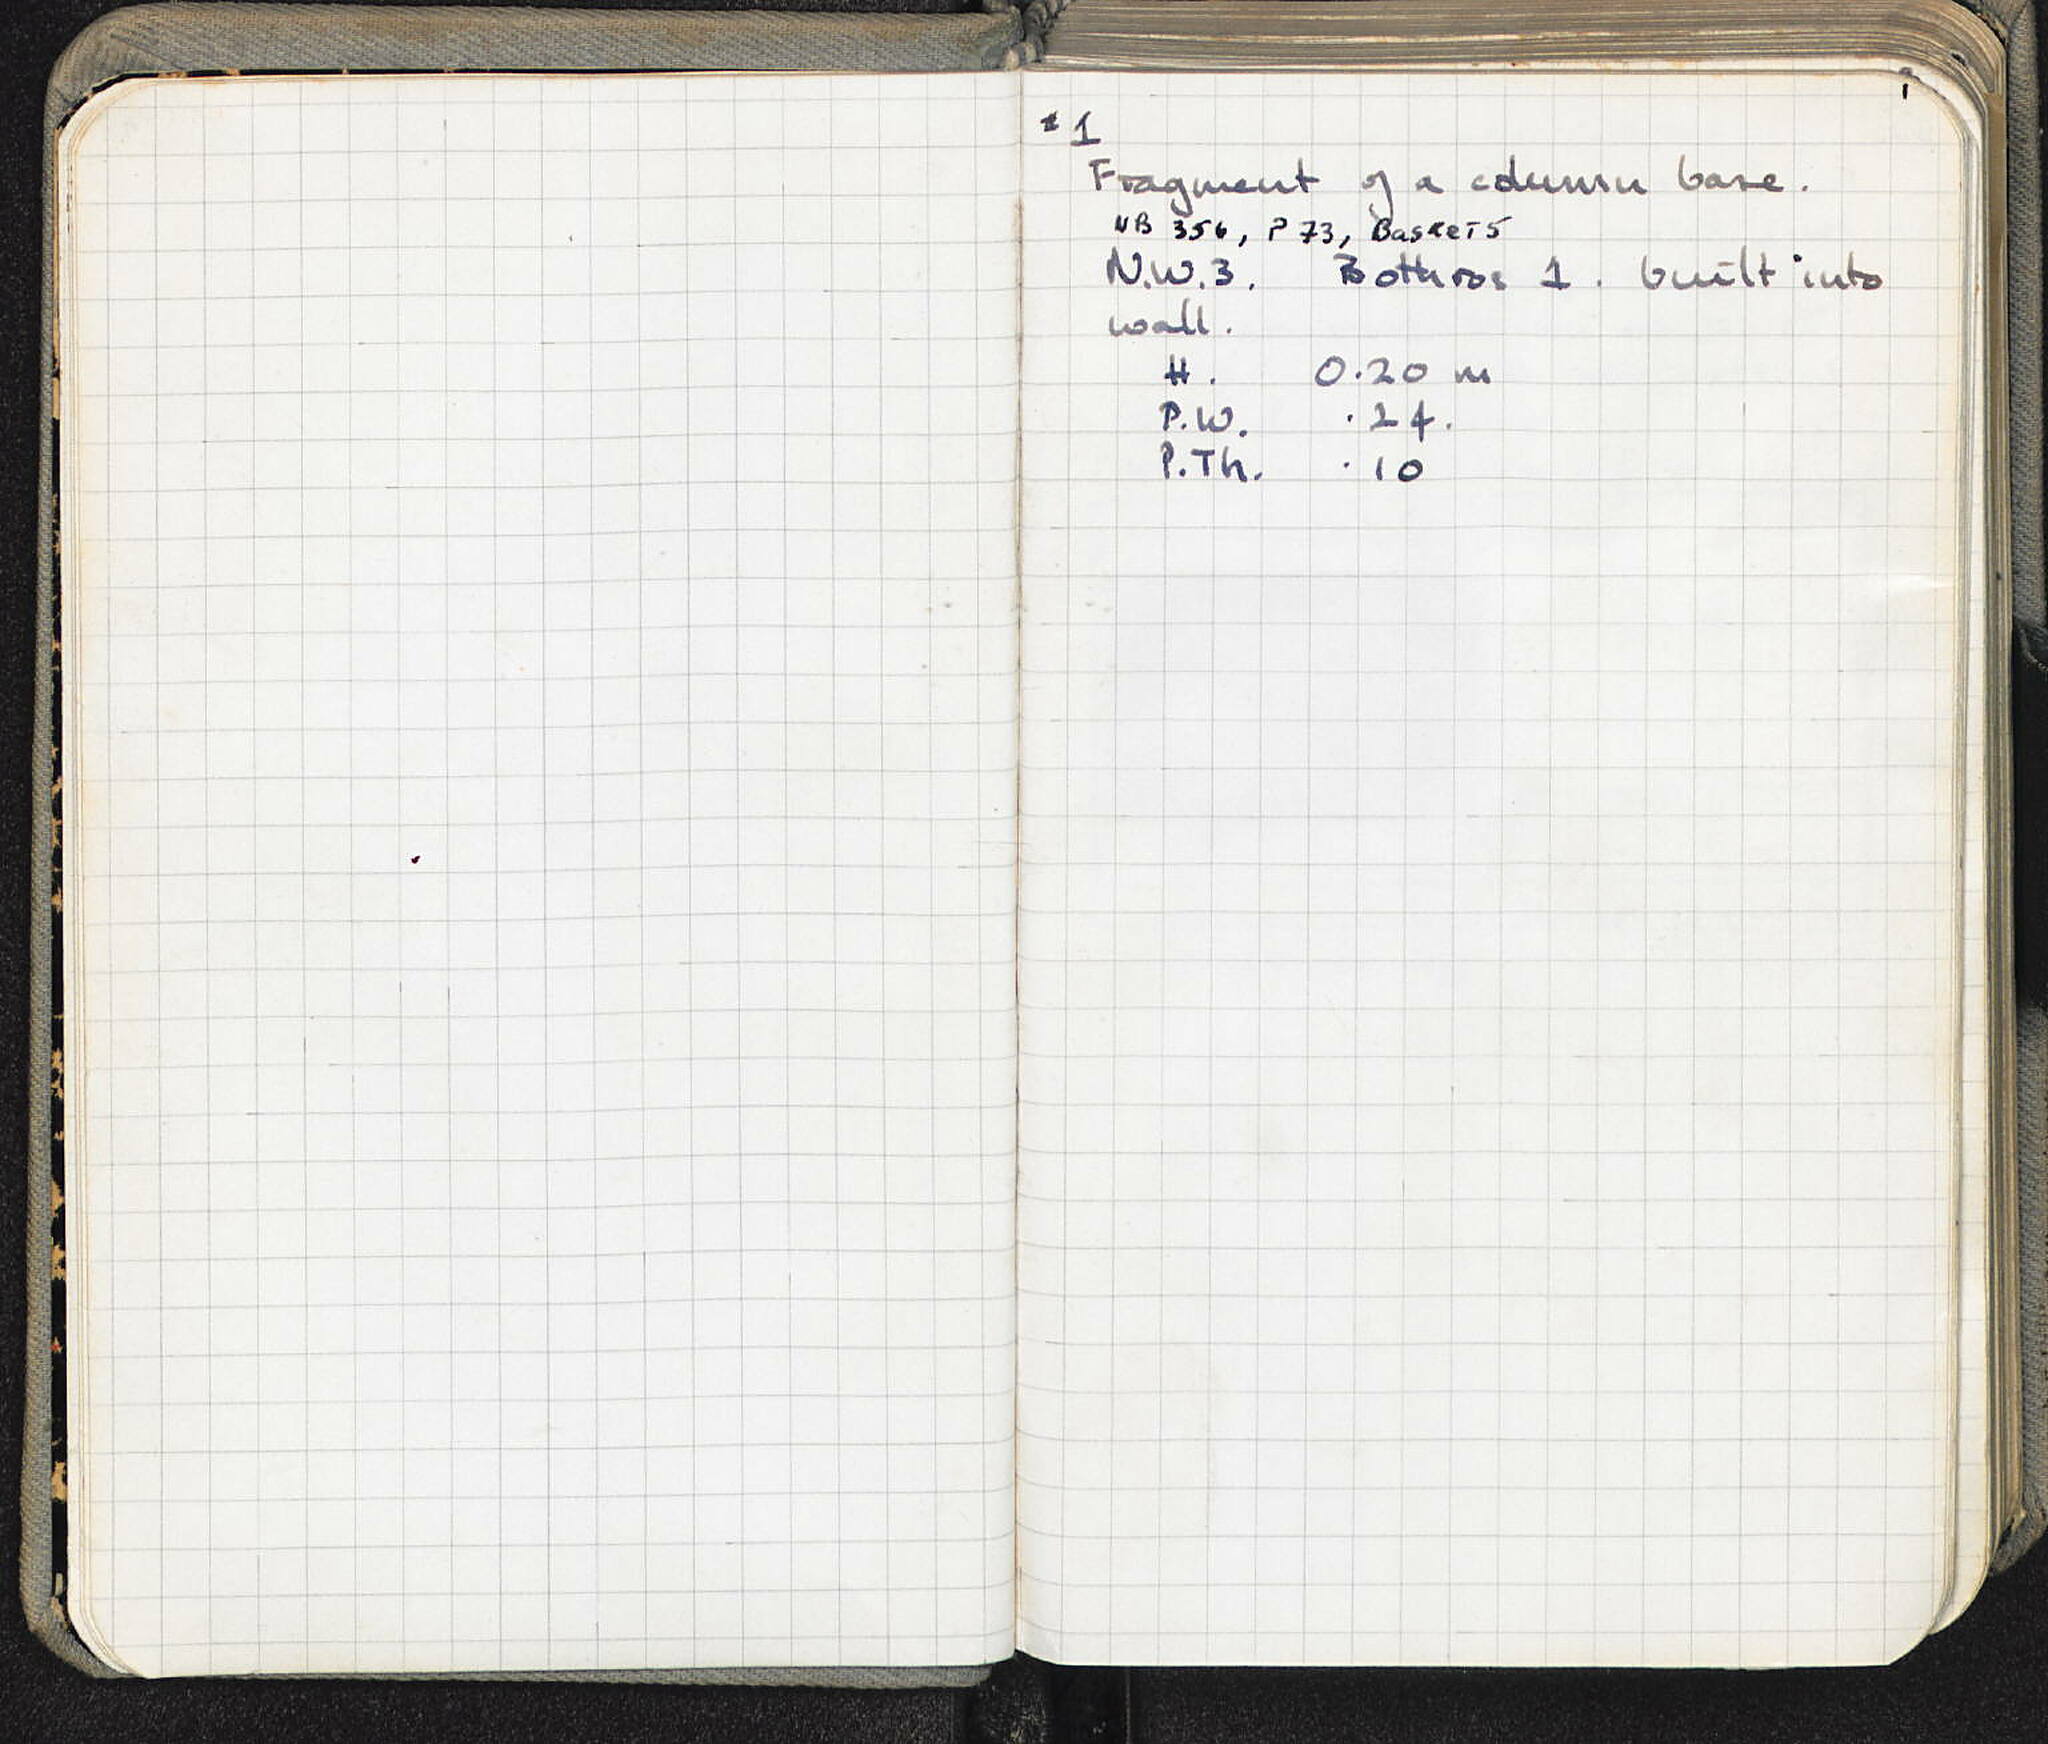 1
#1
Fragment of a column base.
NB 356, P 73, Basket 5
N.W.3. Bothros 1. built into
wall.
H. 0.20 m
P.W. .24.
P.Th. .10